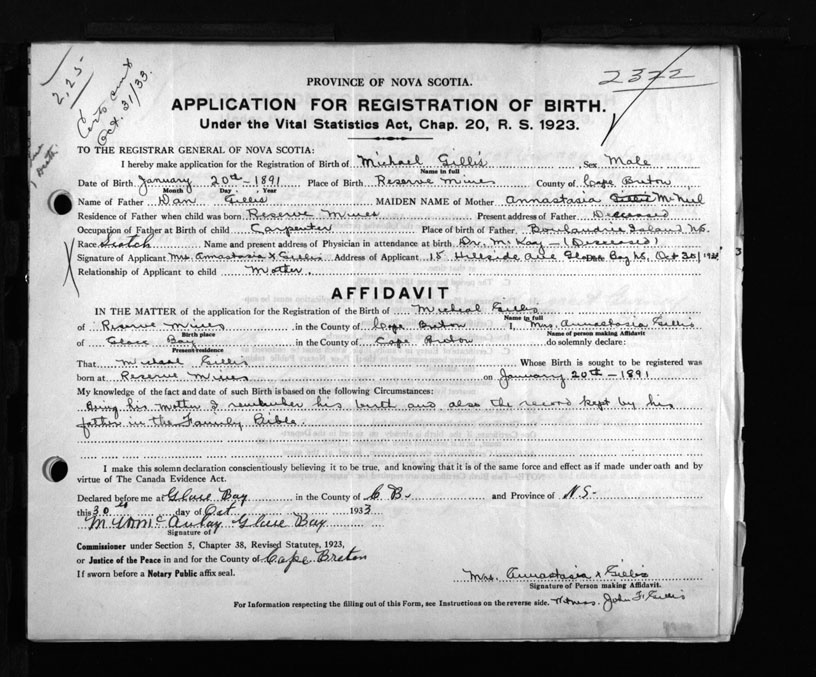 2,25-
Certs cent
Oct. 31/33.
2372
PROVINCE OF NOVA SCOTIA.
APPLICATION FOR REGISTRATION OF BIRTH.
Under the Vital Statistics Act, Chap. 20, R. S. 1923.
TO THE REGISTRAR GENERAL OF NOVA SCOTIA:
I hereby make application for the Registration of Birth of Michael Gillis Sex Male
Name in full
Date of Birth January 20th - 1891 Place of Birth Reserve Mines County of Cape Breton
Month Day Year
Name of Father Dan Gillis MAIDEN NAME of Mother Annastasia McNeil
Residence of Father when child was born Reserve Mines Present address of Father Deceased
Occupation of Father at Birth of child Carpenter Place of birth of Father Island N.S.
Race Scotch Name and present address of Physician in attendance at birth Dr. McKay - (Deceased)
Signature of Applicant Mrs. Annastasia X Gillis Address of Applicant 18 Hillside Ave Glace Bay N.S. Oct 30/
Relationship of Applicant to child Mother.
AFFIDAVIT
IN THE MATTER of the application for the Registration of the Birth of Micheal Gillis
Name in full
of Reserve Mines in the County of Cape Breton I, Mrs. Annastasia Gillis
Birth place Name of person making Affidavit
of Glace Bay in the County of Cape Breton do solemnly declare:
Present residence
That Micheal Gillis Whose Birth is sought to be registered was
born at Reserve Mines on January 20th - 1891
My knowledge of the fact and date of such Birth is based on the following Circumstances:
Being his mother I remember his birth and also the record kept by his
father in the Family Bible.
I make this solemn declaration conscientiously believing it to be true, and knowing that it is of the same force and effect as if made under oath and by
virtue of The Canada Evidence Act.
Declared before me at Glace Bay in the County of C B. and Province of N.S-
this 30th day of Oct. 1933
McAulay Glace Bay
Signature of
Commissioner under Section 5, Chapter 38, Revised Statutes, 1923,
or Justice of the Peace in and for the County of Cape Breton
If sworn before a Notary Public affix seal.
Mrs. Annastasia X Gillis
Signature of Person making Affidavit.
For Information respecting the filling out of this Form, see Instructions on the reverse side. Witness. John F. Gillis